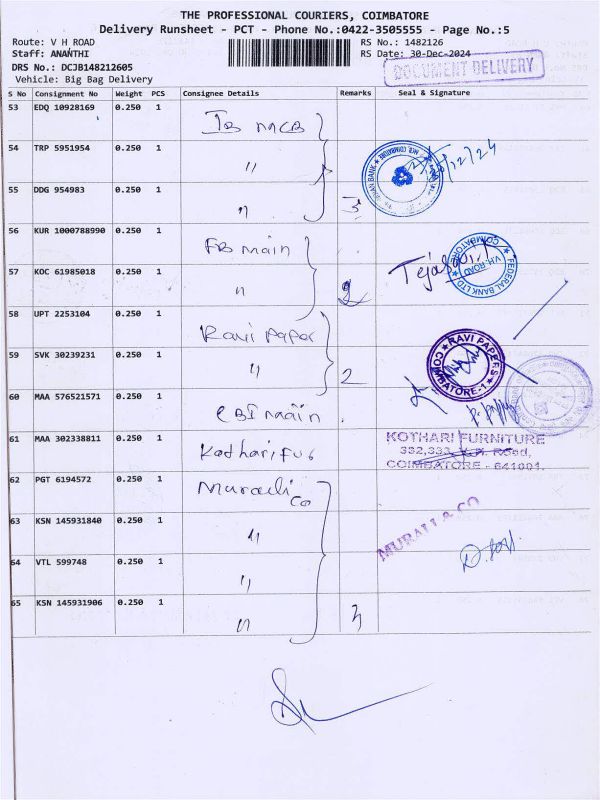 THE PROFESSIONAL COURIERS, COIMBATORE
Delivery Runsheet - PCT - Phone No.:0422-3505555 - Page No.:5
Route: V H ROAD
RS No.: 1482126
Staff: ANANTHI
RS Date: 30-Dec-2024
DRS No.: DCJB148212605
DOCUMENT DELIVERY
Vehicle: Big Bag Delivery
S No Consignment No Weight PCS Consignee Details Remarks Seal & Signature
53 EDQ 10928169 0.250 1 IB MCB
54 TRP 5951954 0.250 1 "
55 DDG 954983 0.250 1 " 3
56 KUR 1000788990 0.250 1 FB main
FEDERAL BANK LTD
V.H. ROAD
COIMBATORE
57 KOC 61985018 0.250 1 " 2
58 UPT 2253104 0.250 1 Ravi Paper
RAVI PAPERS
COIMBATORE-1
59 SVK 30239231 0.250 1 " 2
60 MAA 576521571 0.250 1 CBI main
61 MAA 302338811 0.250 1 Kothari Fur
KOTHARI FURNITURE
332,333, V.H. Road,
COIMBATORE - 641001.
62 PGT 6194572 0.250 1 Murali Co
63 KSN 145931840 0.250 1 "
MURALI & CO
64 VTL 599748 0.250 1 "
65 KSN 145931906 0.250 1 " 3